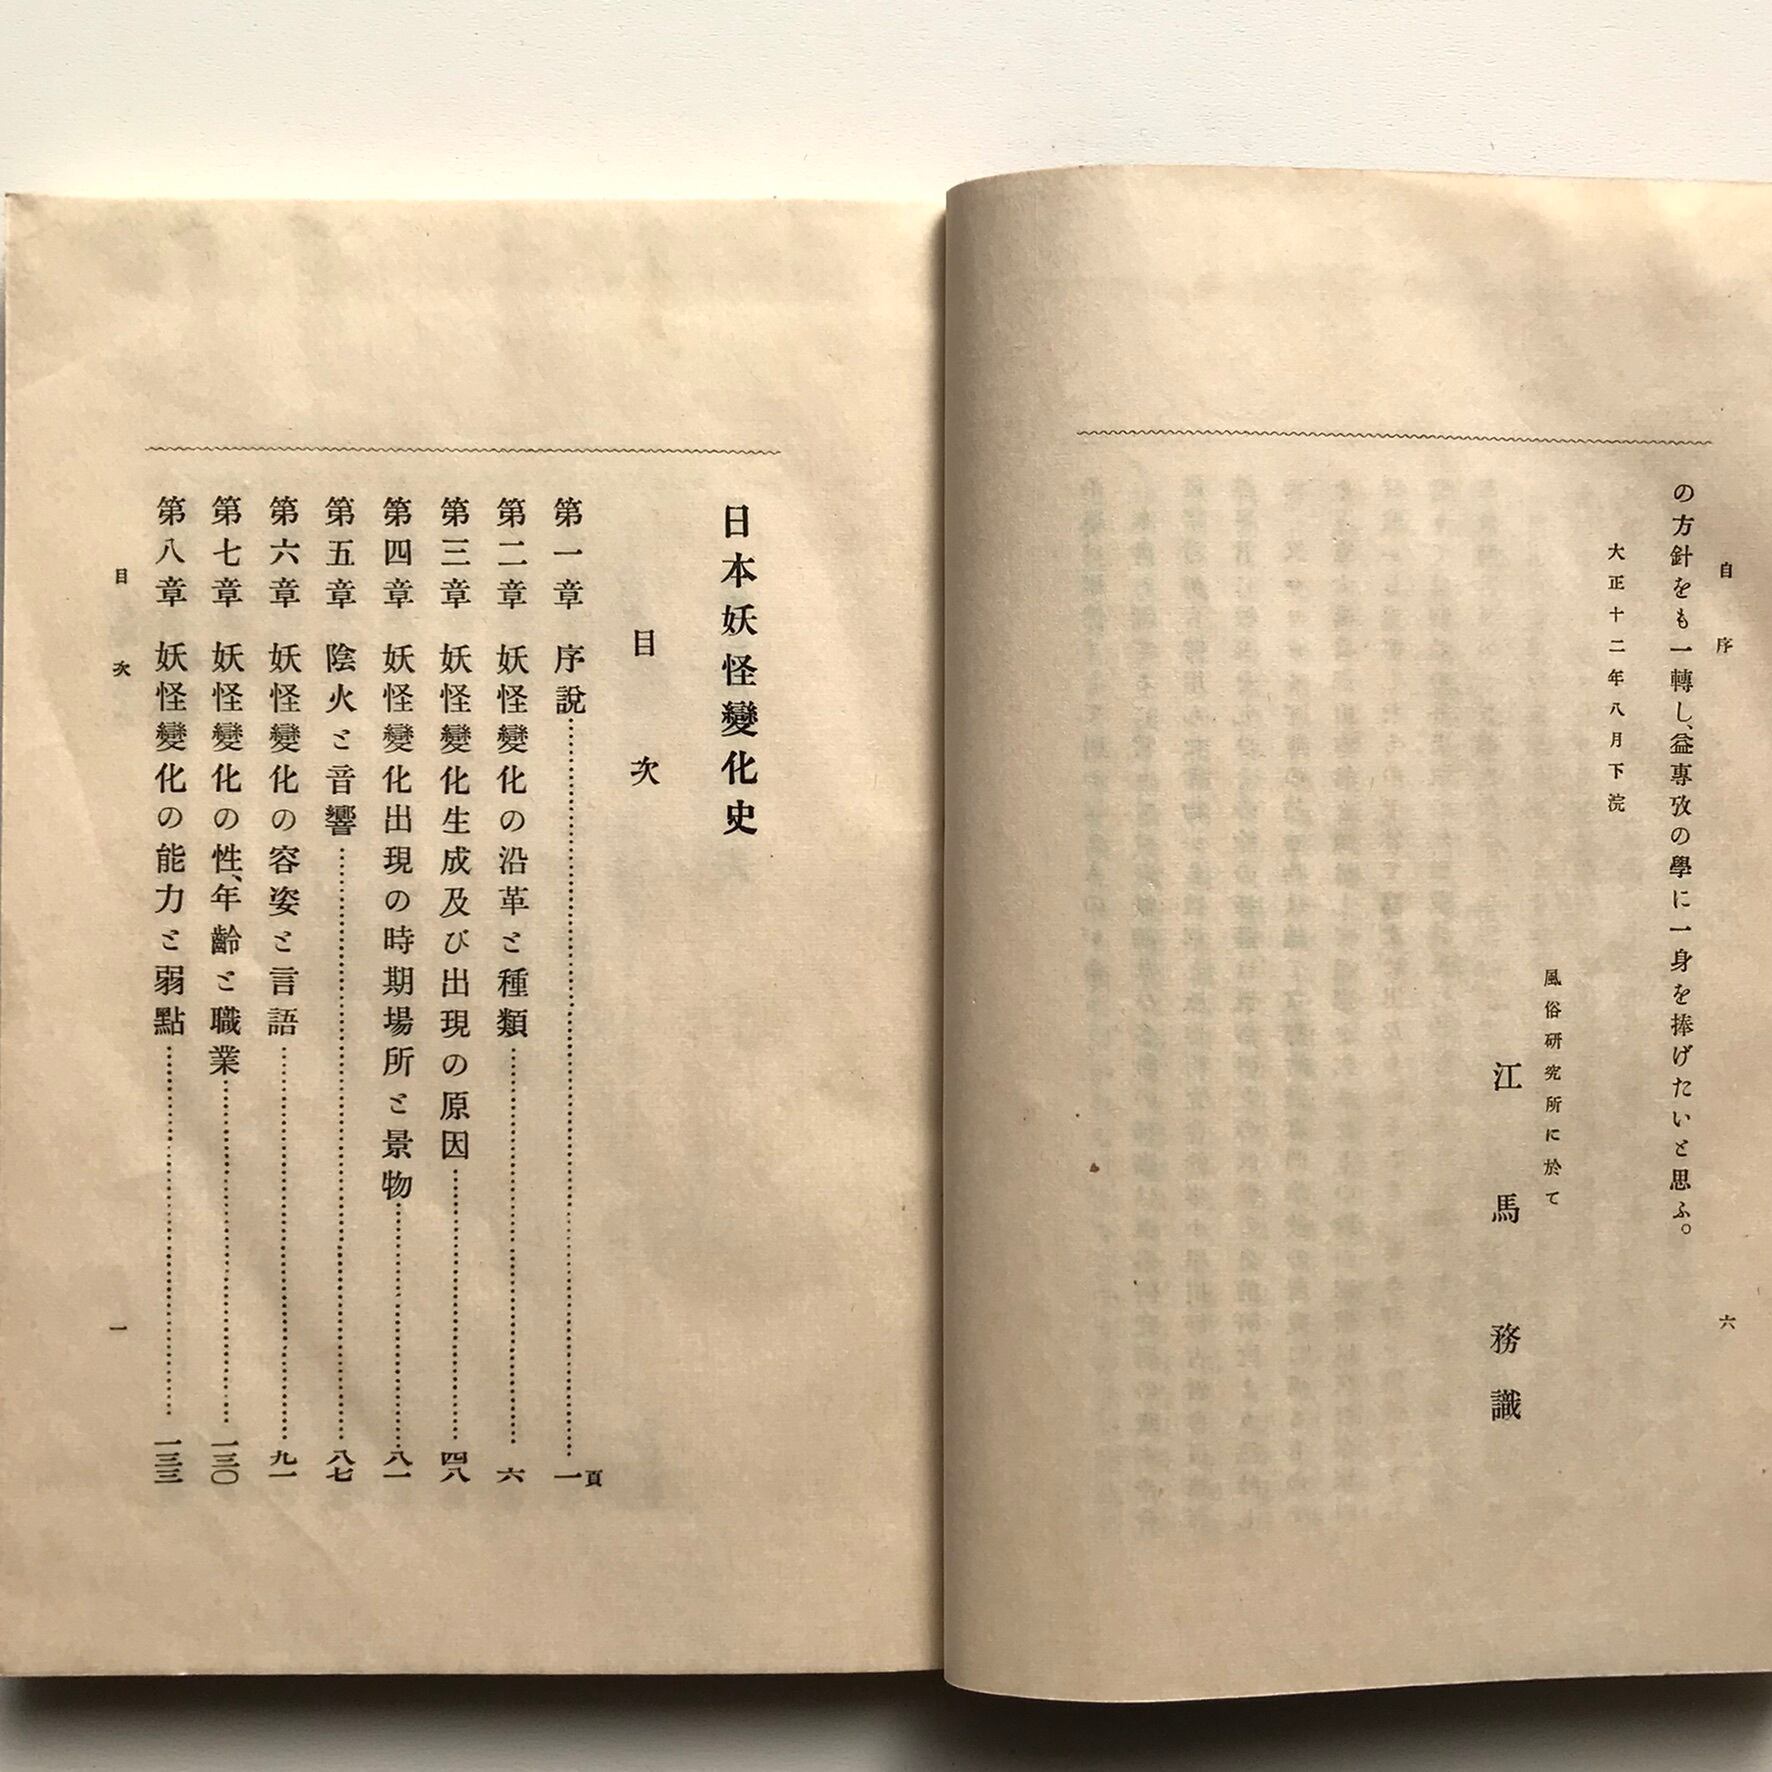 自序
六
の方針をも一轉し、益專攷の學に一身を捧げたいと思ふ。
大正十二年八月下浣
風俗硏究所に於て
江馬務識
日本妖怪變化史
目次
頁
第一章 序說……一
第二章 妖怪變化の沿革と種類……六
第三章 妖怪變化生成及び出現の原因……四八
第四章 妖怪變化出現の時期場所と景物……八一
第五章 陰火と音響……八七
第六章 妖怪變化の容姿と言語……九一
第七章 妖怪變化の性、年齡と職業……一三〇
第八章 妖怪變化の能力と弱點……一三三
目次
一